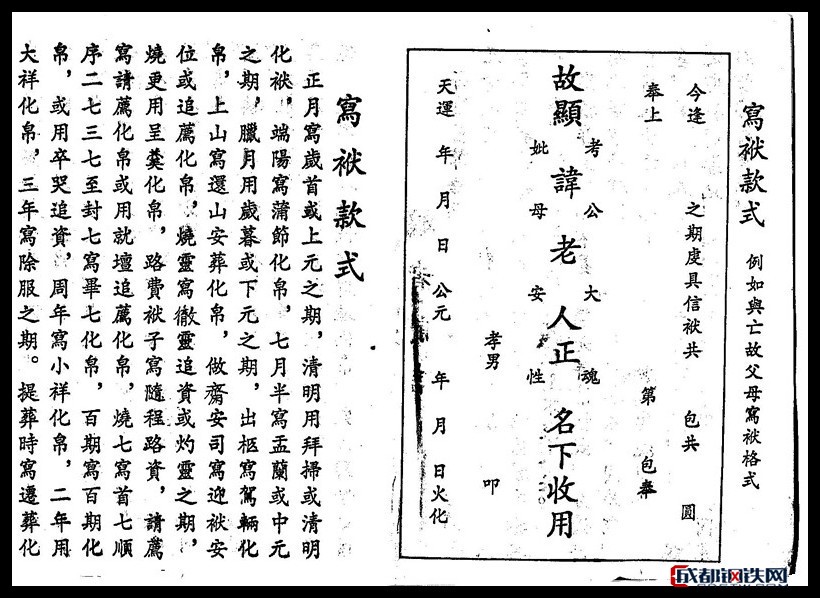 寫袱款式 例如與亡故父母寫袱格式
今逢 之期虔具信袱共 包共 圓
奉上 第 包奉
考公大魂
故顯 諱 老 人正 名下收用
妣母安性
孝男 叩
天運 年 月 日 公元 年 月 日火化
寫袱款式
正月寫歲首或上元之期,清明用拜掃或清明
化袱,端陽寫蒲節化帛,七月半寫盂蘭或中元
之期,臘月用歲暮或下元之期,出柩寫駕輛化
帛,上山寫還山安葬化帛,做齋安司寫迎袱安
位或追薦化帛,燒靈寫徹靈追資或灼靈之期,
燒更用呈羹化帛,路費袱子寫隨程路資,請薦
寫請薦化帛或用就壇追薦化帛,燒七寫首七順
序二七三七至封七寫畢七化帛,百期寫百期化
帛,或用卒哭追資,周年寫小祥化帛,二年用
大祥化帛,三年寫除服之期。提葬時寫遷葬化
成都钢铁网